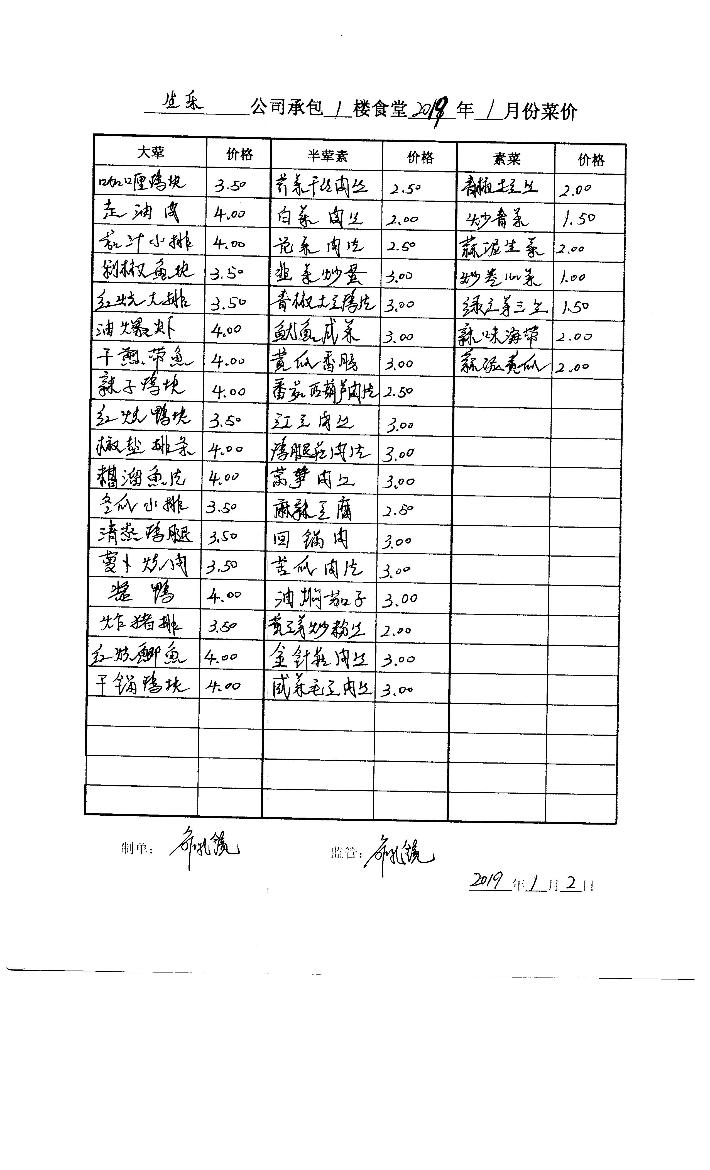 生乐 公司承包 1 楼食堂 2019 年 1 月份菜价
大荤 价格 半荤素 价格 素菜 价格
咖喱鸡块 3.50 芹菜干丝肉丝 2.50 青椒土豆丝 2.00
走油肉 4.00 白菜肉丝 2.00 炒青菜 1.50
茄汁小排 4.00 花菜肉片 2.50 蒜泥生菜 2.00
剁椒鱼块 3.50 韭菜炒蛋 3.00 炒卷心菜 1.00
红烧大排 3.50 青椒土豆鸡片 3.00 绿豆芽三丝 1.50
油爆虾 4.00 鱿鱼咸菜 3.00 辣味海带 2.00
干煎带鱼 4.00 黄瓜香肠 3.00 蒜泥黄瓜 2.00
辣子鸡块 4.00 番茄西葫芦肉片 2.50
红烧鸭块 3.50 豇豆肉丝 3.00
椒盐排条 4.00 鸡腿菇肉片 3.00
糟溜鱼片 4.00 莴笋肉丝 3.00
冬瓜小排 3.50 麻辣豆腐 2.50
清蒸鸡腿 3.50 回锅肉 3.00
萝卜烧肉 3.50 苦瓜肉片 3.00
酱鸭 4.00 油焖茄子 3.00
炸猪排 3.50 黄豆芽炒粉丝 2.00
红烧鲫鱼 4.00 金针菇肉丝 3.00
干锅鸭块 4.00 咸菜毛豆肉丝 3.00
制单： 监管：
2019 年 1 月 2 日